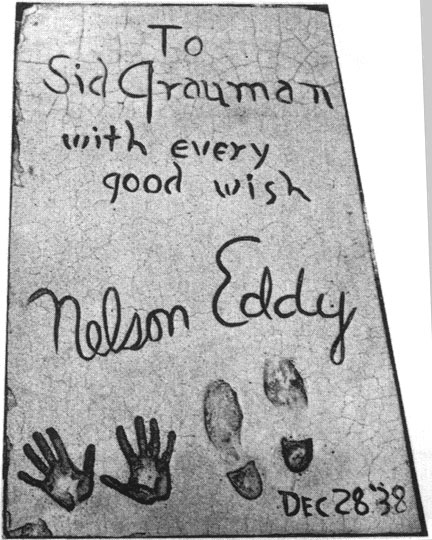 To
Sid Grauman
with every
good wish
Nelson Eddy
DEC 28 '38